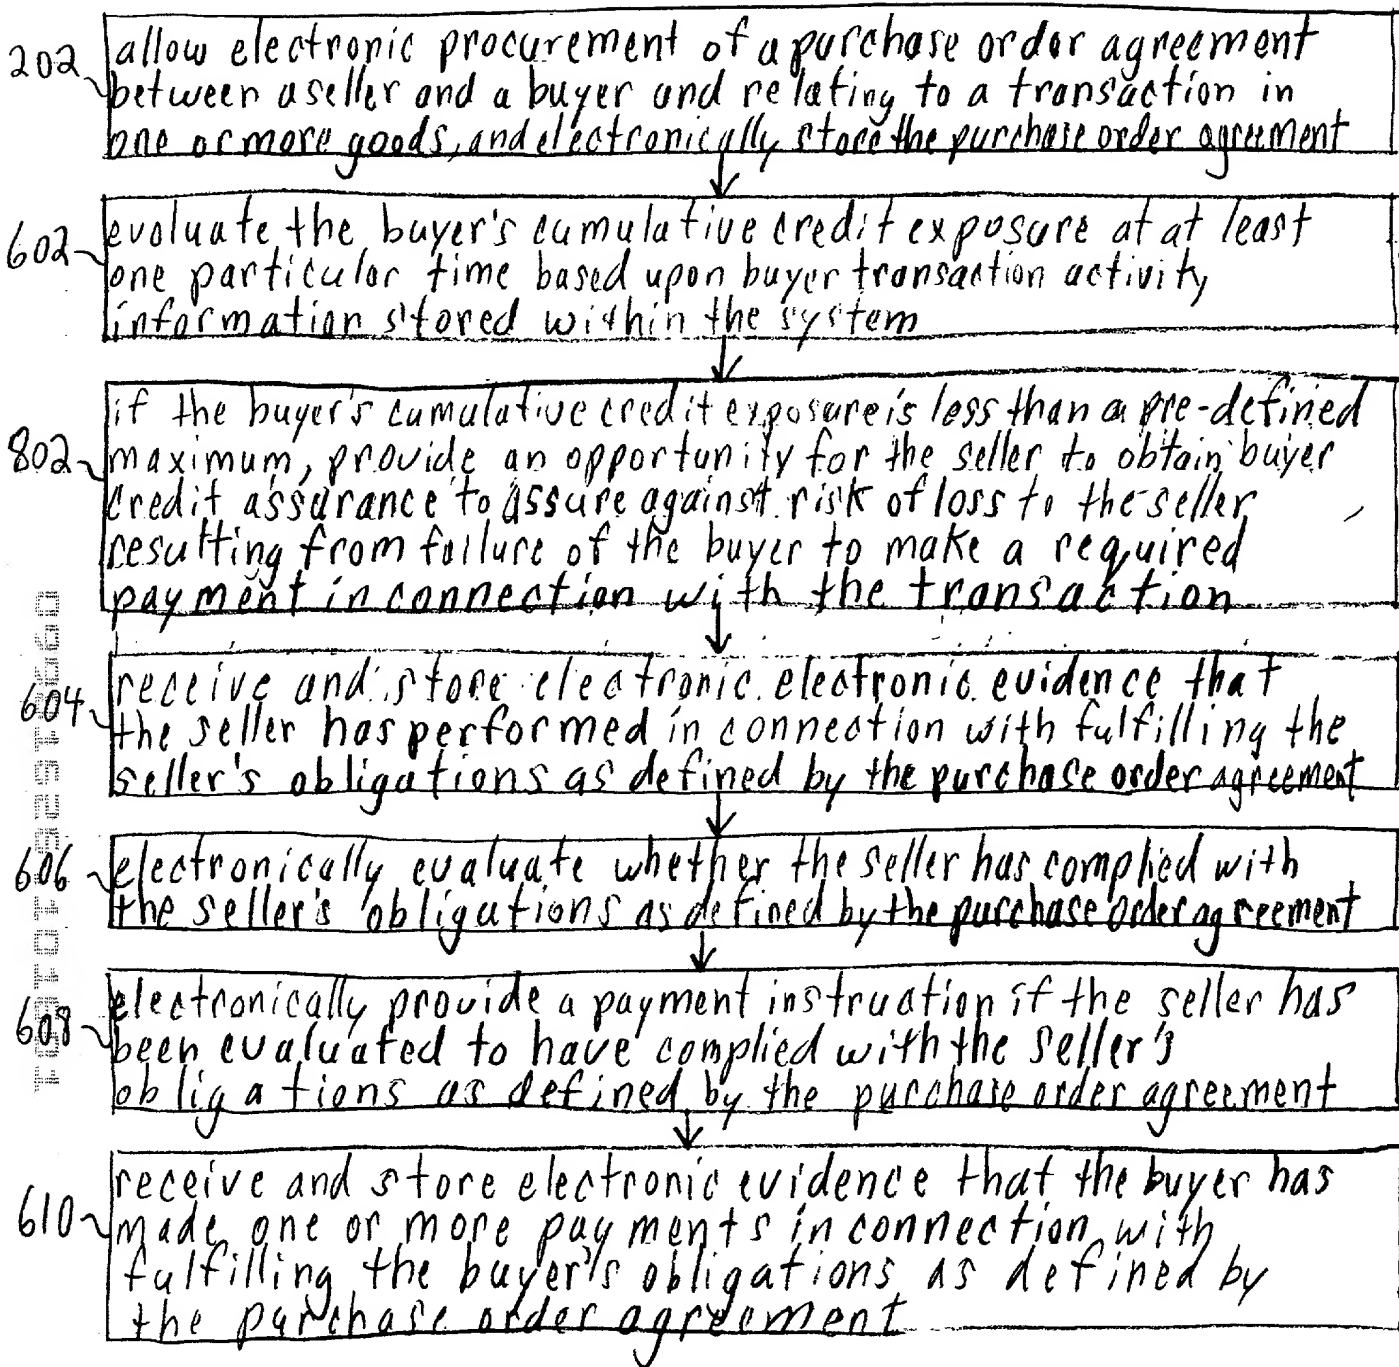 202 allow electronic procurement of a purchase order agreement
between a seller and a buyer and relating to a transaction in
one or more goods, and electronically store the purchase order agreement
602 evaluate the buyer's cumulative credit exposure at at least
one particular time based upon buyer transaction activity
information stored within the system
if the buyer's cumulative credit exposure is less than a pre-defined
802 maximum, provide an opportunity for the seller to obtain buyer
credit assurance to assure against risk of loss to the seller
resulting from failure of the buyer to make a required
payment in connection with the transaction
604 receive and store electronic electronic evidence that
the seller has performed in connection with fulfilling the
seller's obligations as defined by the purchase order agreement
606 electronically evaluate whether the seller has complied with
the seller's obligations as defined by the purchase order agreement
608 electronically provide a payment instruction if the seller has
been evaluated to have complied with the seller's
obligations as defined by the purchase order agreement
610 receive and store electronic evidence that the buyer has
made one or more payments in connection with
fulfilling the buyer's obligations as defined by
the purchase order agreement